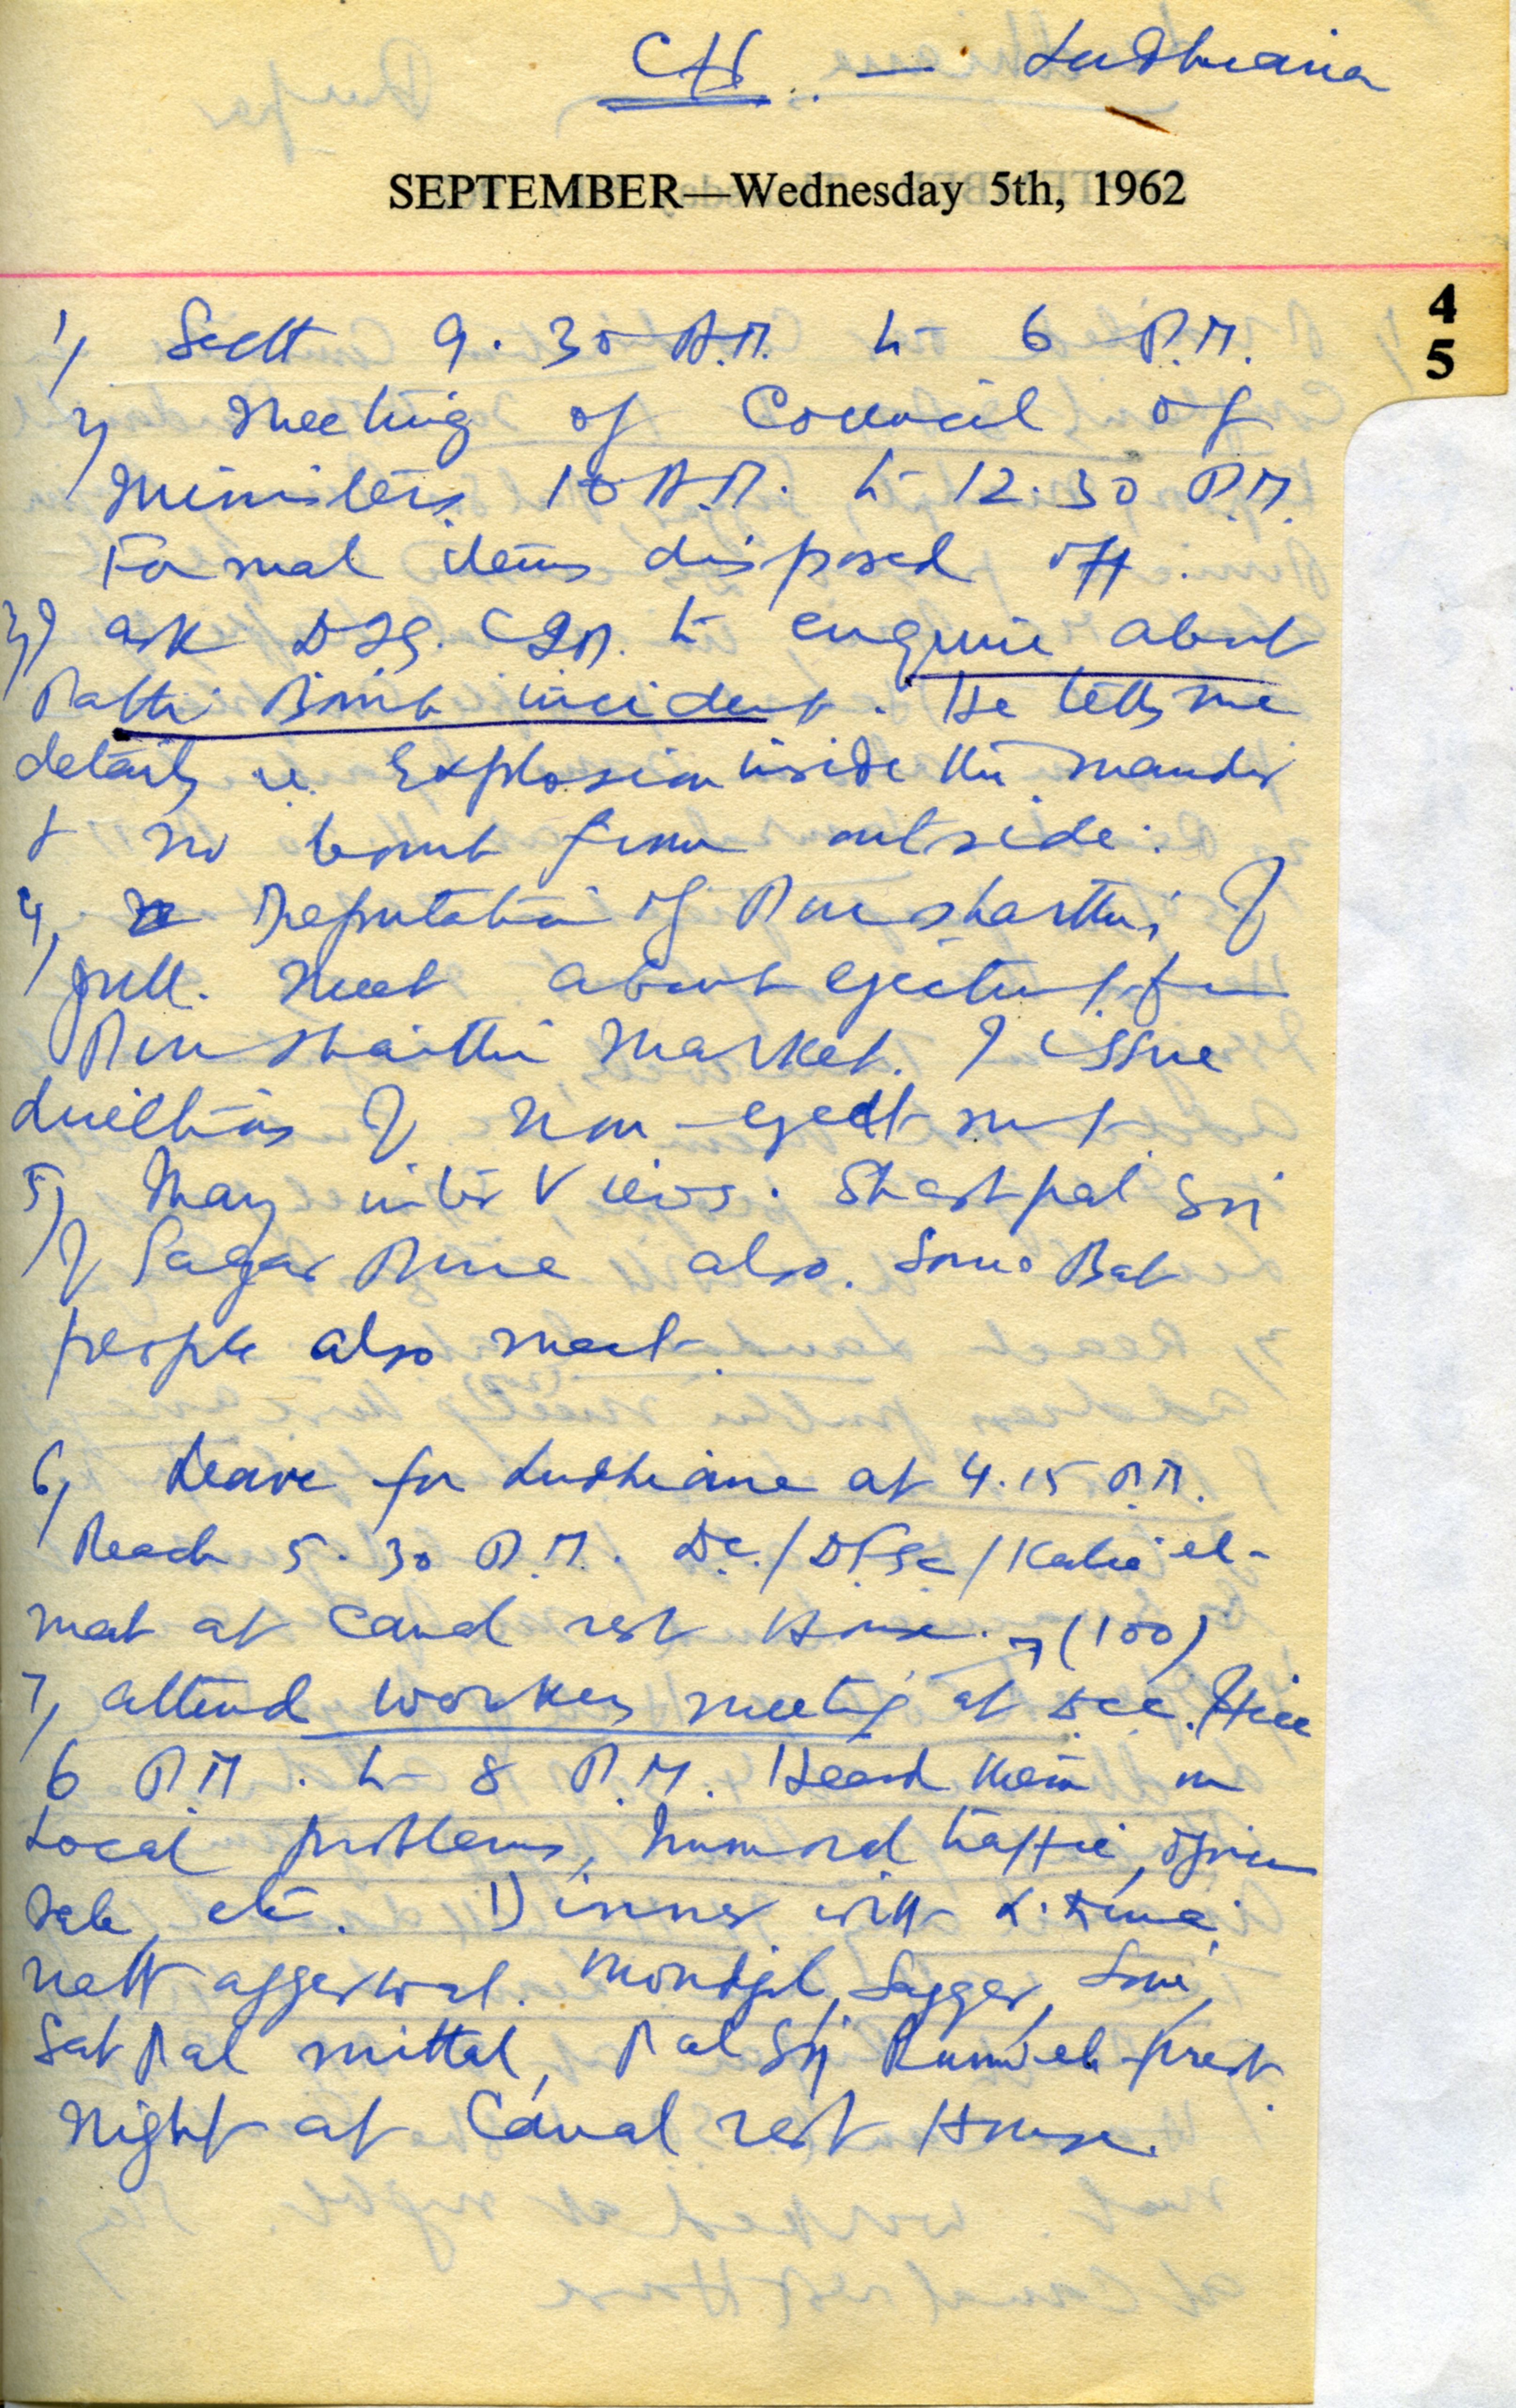 CH. — Ludhiana
SEPTEMBER—Wednesday 5th, 1962
4
5
1) Sectt 9.30 A.M. to 6 P.M.
2) Meeting of Council of
Ministers 10 A.M. to 12.30 P.M.
Formal items disposed off.
3) ask DIG. CID. to enquire about
Patti Bomb incident. He tells me
details ie. Explosion inside the mandir
& no bomb from outside.
4) Deputation of Pursharthi of
Jull. meet about ejectment from
Pursharthi Market. I issue
directions of non-ejectment.
5) Many interviews. Shastpal Singh
of also. Some Bat
people also meet.
6) Leave for Ludhiana at 4.15 P.M.
Reach 5.30 P.M. DC./
meet at Canal rest House. (100)
7) attend workers meeting at
6 P.M. to 8 P.M. Heard them on
Local problems, immoral traffic, opium
sale, etc. Dinner with L.
nath aggerwal. Saggar,
Sat Pal mittal, Pal Singh
Night at Canal rest House.